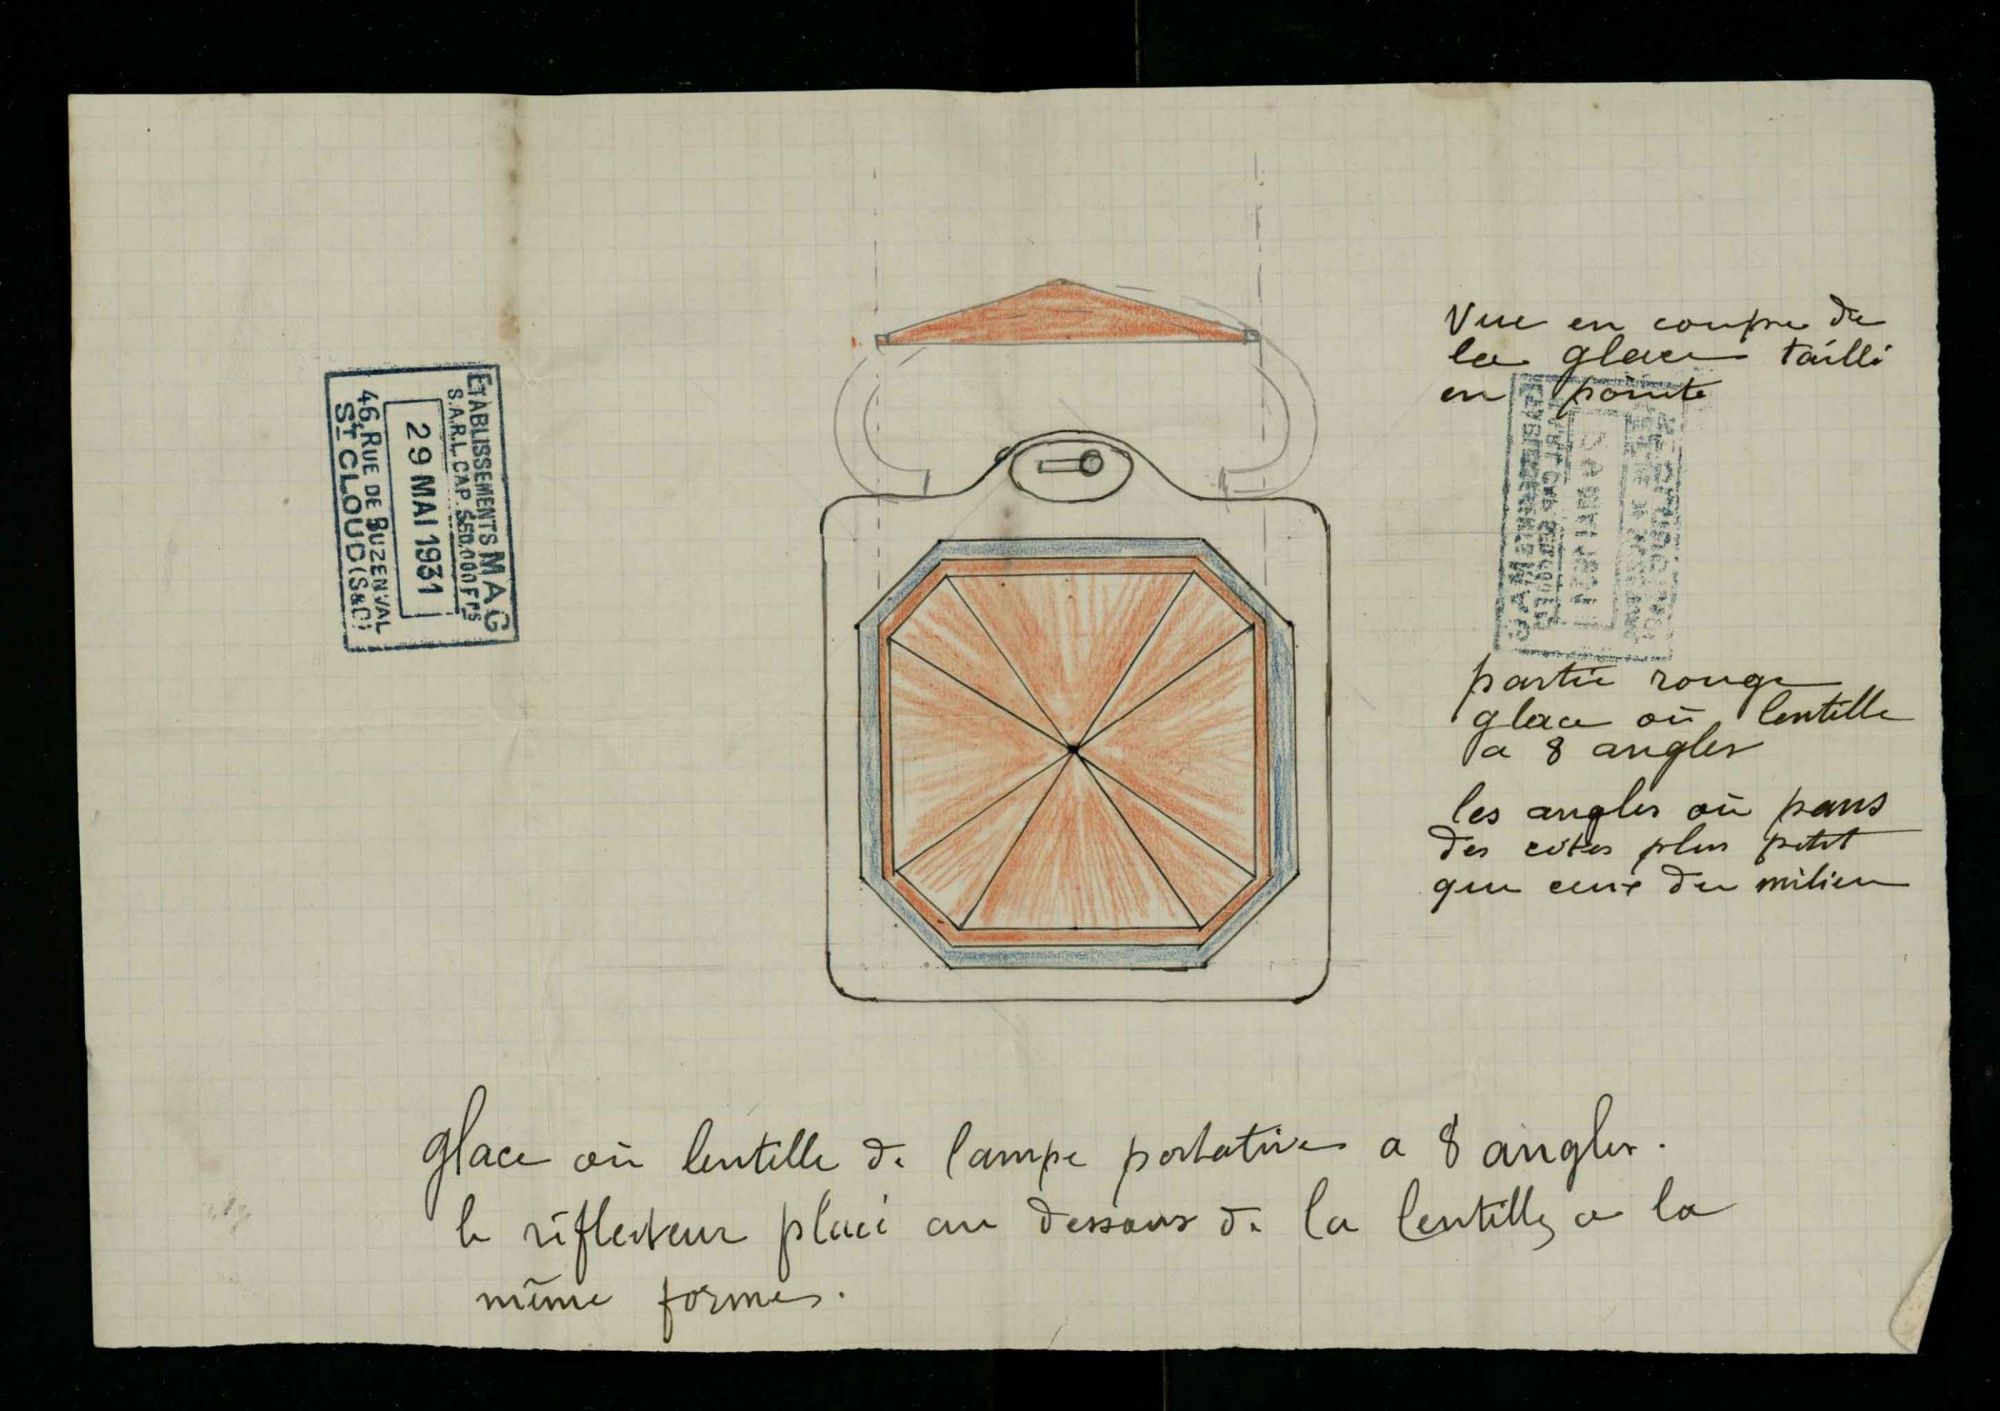 ETABLISSEMENTS MAG
S.A.R.L. CAP. 550.000 Frs
29 MAI 1931
46, RUE DE BUZENVAL
St CLOUD (S&O)
Vue en coupe de
la glace taillé
en pointe
partie rouge
glace où lentille
a 8 angles
les angles où pans
des cotés plus petit
que ceux du milieu
glace où lentille de lampe portative a 8 angles.
le réflecteur placé au dessous de la lentille, a la
même forme.